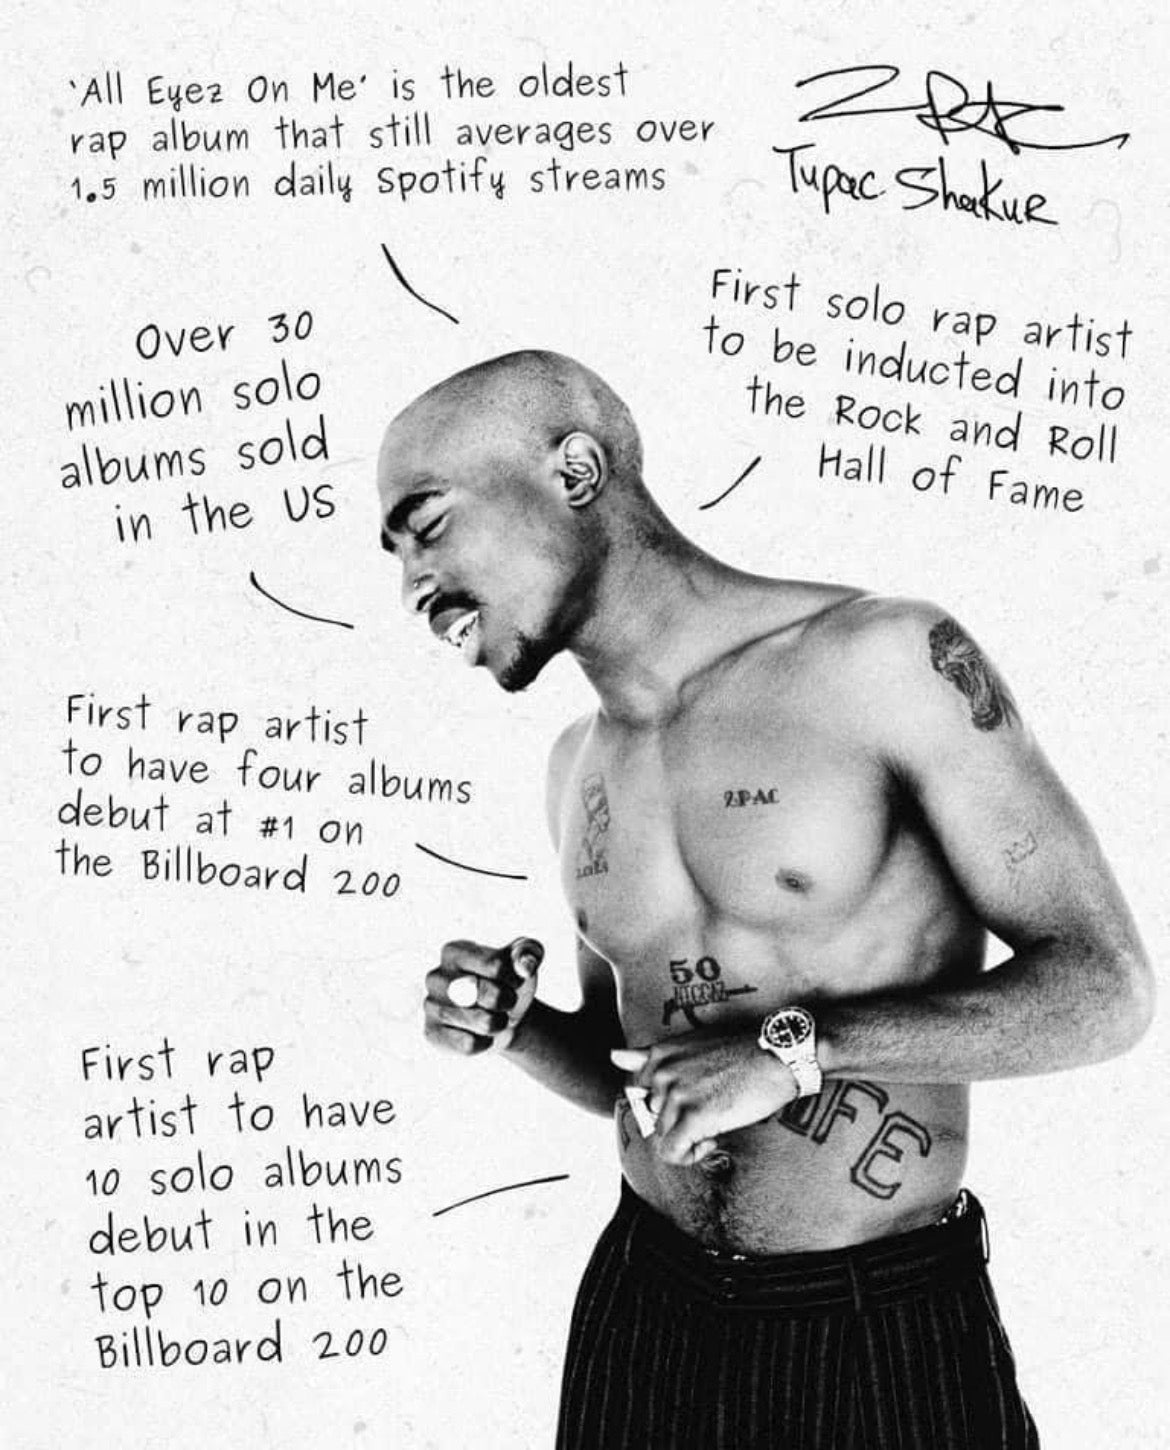 'All Eyez On Me' is the oldest
rap album that still averages over
1.5 million daily Spotify streams
2PAC
Tupac Shakur
First solo rap artist
to be inducted into
the Rock and Roll
Hall of Fame
Over 30
million solo
albums sold
in the US
First rap artist
to have four albums
debut at #1 on
the Billboard 200
2PAC
50
NIGGAZ
LIFE
First rap
artist to have
10 solo albums
debut in the
top 10 on the
Billboard 200